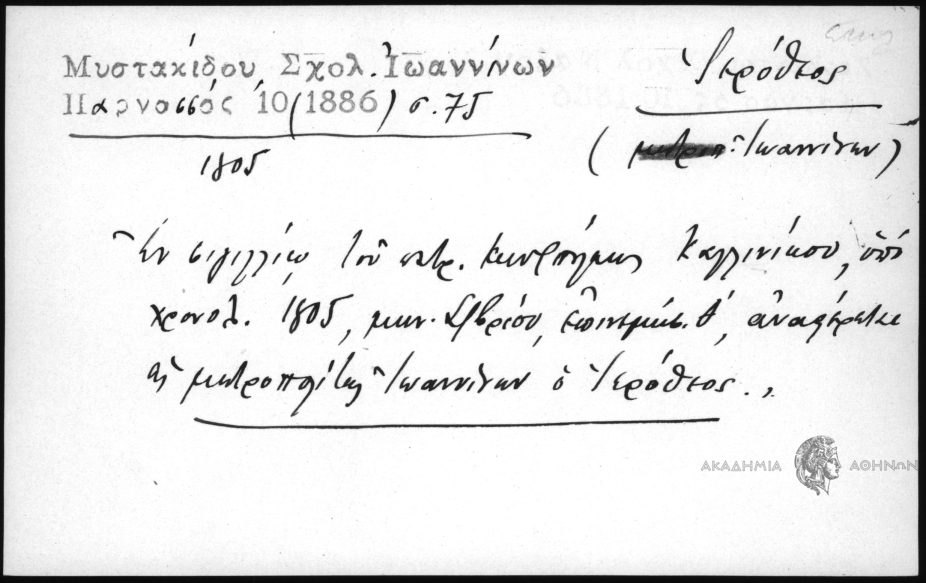 Μυστακίδου, Σχολ. Ἰωαννίνων
Παρνασσός 10 (1886) σ. 75
1805
Ἱερόθεος
(μητροπ. Ἰωαννίνων)
Ἐν σιγιλλίῳ τοῦ πατρ. Κων/πόλεως Καλλινίκου, ὑπό
χρονολ. 1805, μην. 9/βρίου, ἐπινεμήσ. θ΄, ἀναφέρεται
ὡς μητροπολίτης Ἰωαννίνων ὁ Ἱερόθεος.
ΑΚΑΔΗΜΙΑ ΑΘΗΝΩΝ